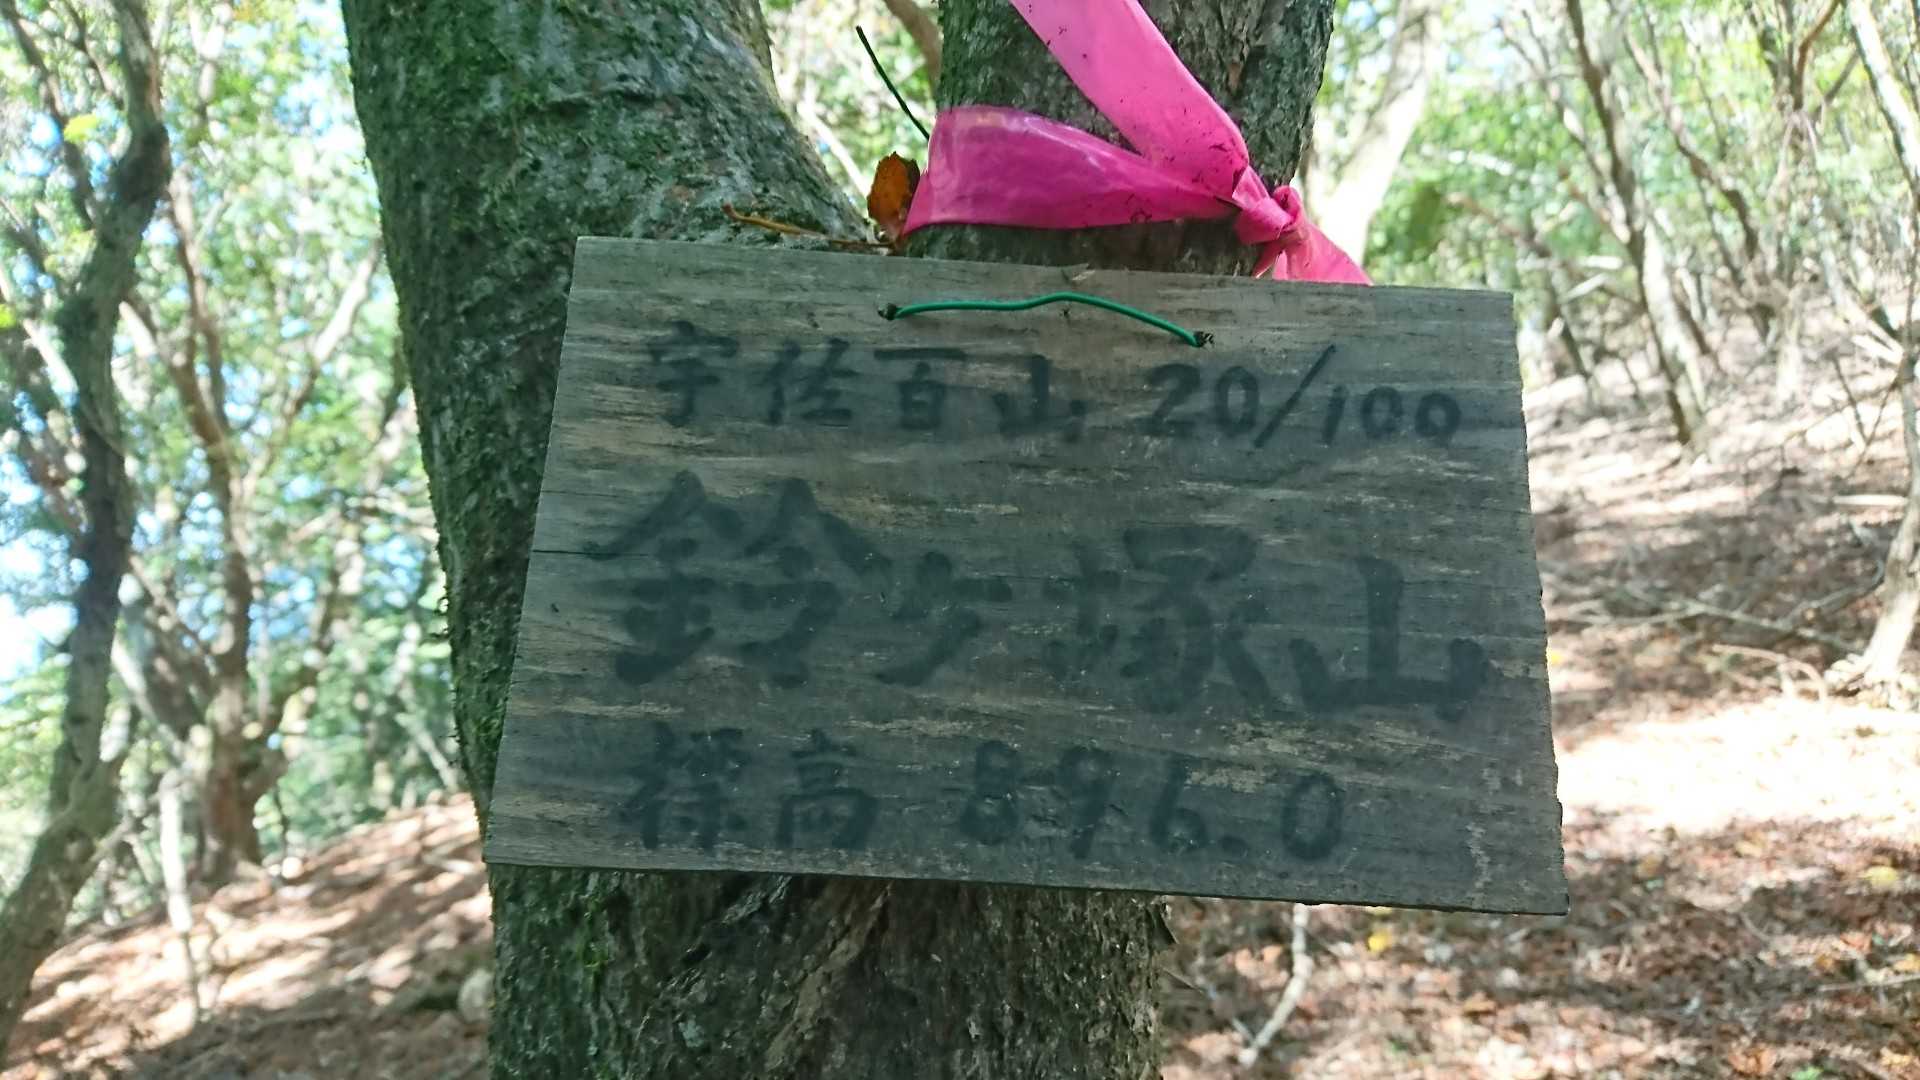 宇佐百山 20/100
鈴ヶ塚山
標高 896.0